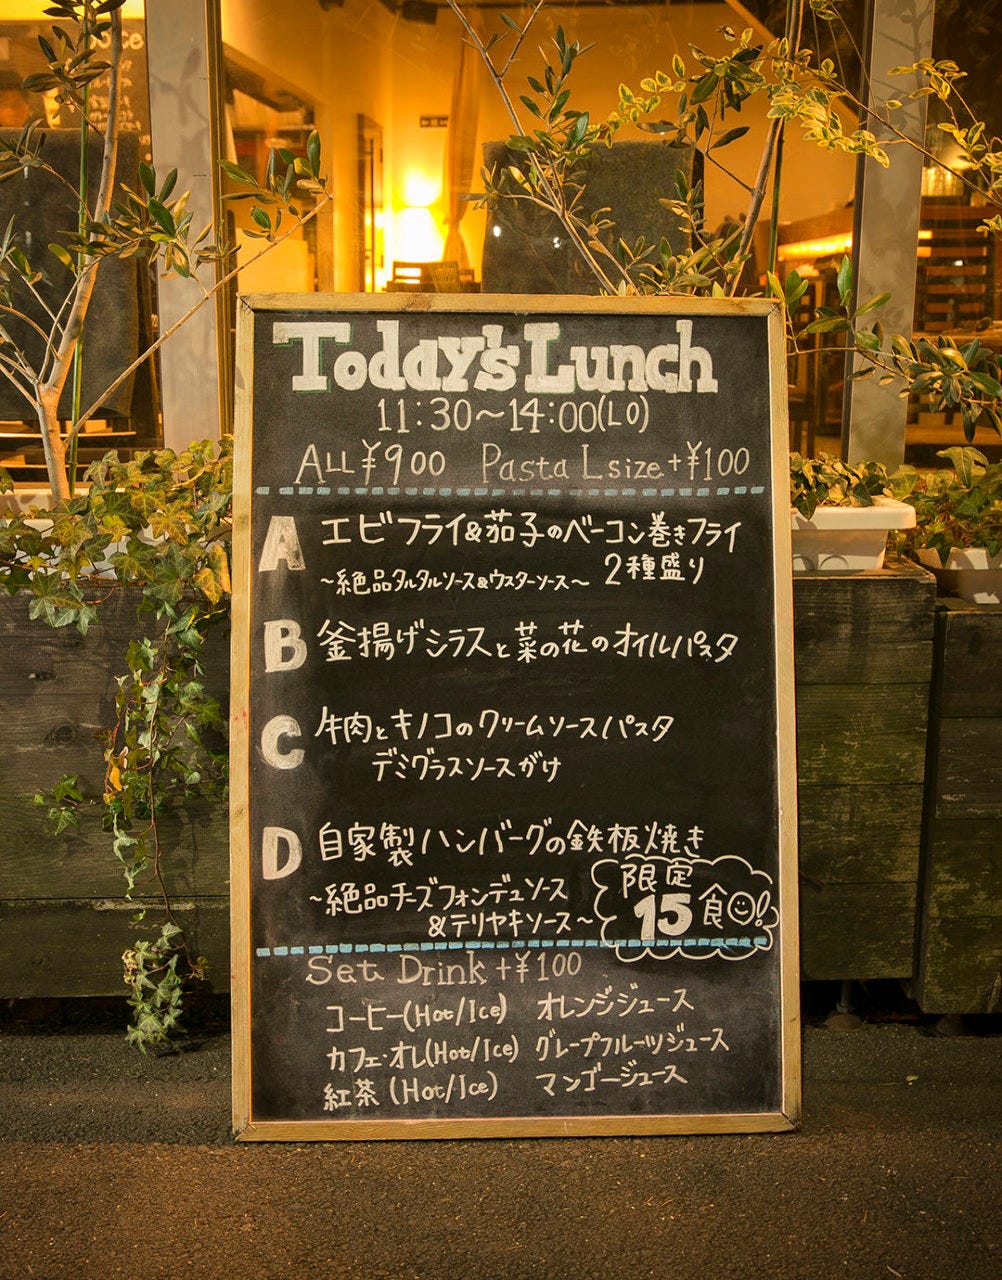 Today's Lunch
11:30〜14:00(LO)
ALL ¥900 Pasta L size +¥100
A エビフライ&茄子のベーコン巻きフライ
2種盛り
〜絶品タルタルソース&ウスターソース〜
B 釜揚げシラスと菜の花のオイルパスタ
C 牛肉とキノコのクリームソースパスタ
デミグラスソースがけ
D 自家製ハンバーグの鉄板焼き
〜絶品チーズフォンデュソース
&テリヤキソース〜
限定
15食!
Set Drink +¥100
コーヒー(Hot/Ice) オレンジジュース
カフェ・オレ(Hot/Ice) グレープフルーツジュース
紅茶(Hot/Ice) マンゴージュース